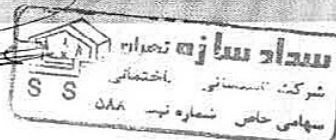 سداد سازه تهران
شرکت ساختمانی
سهامی خاص شماره ثبت ۵۸۸
S S